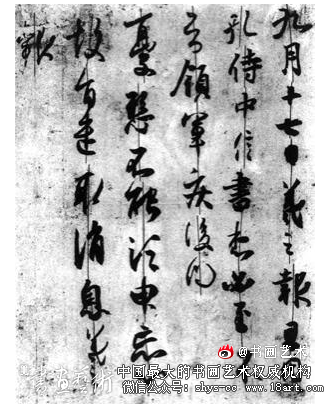 九月十七日羲之報且因
孔侍中信書想必至不
知領軍疾後問
憂懸不能須臾忘心
故旨遣取消息羲之
報
@书画艺术
中国最大的书画艺术权威机构
微信公众号: shys-cc www.18art.com